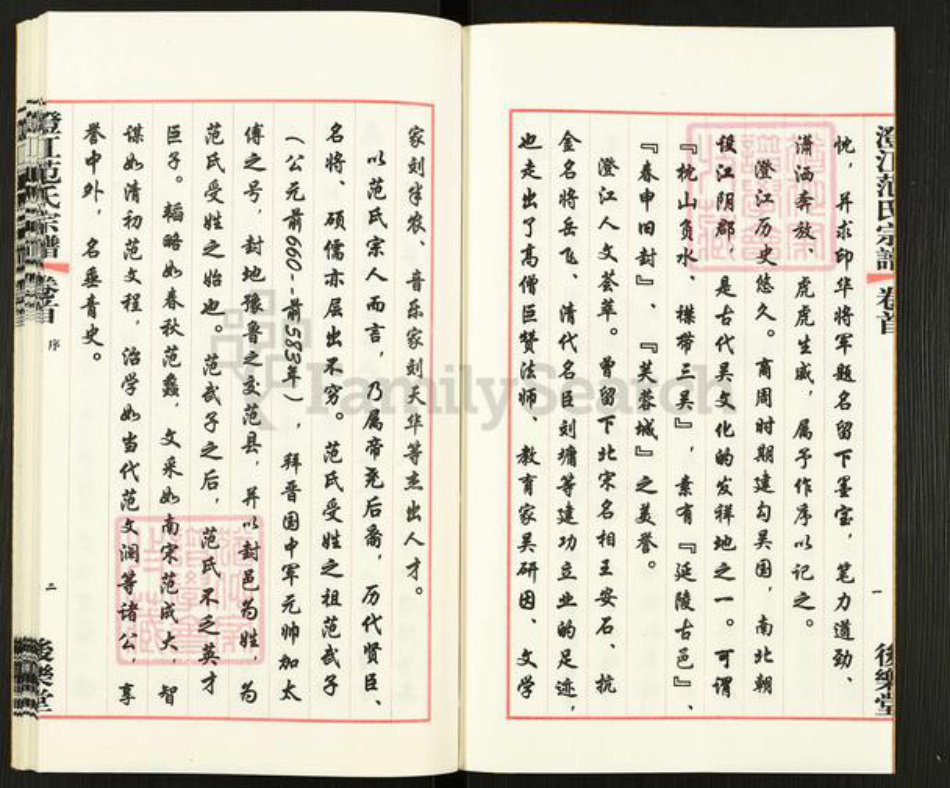 澄江范氏宗譜 卷首 一 後樂堂
忱，并求印华将军题名留下墨宝，笔力遒劲、
潇洒奔放、虎虎生威，属予作序以记之。
澄江历史悠久。商周时期建勾吴国，南北朝
设江阴郡，是古代吴文化的发祥地之一。可谓
『枕山负水、襟带三吴』，素有『延陵古邑』、
『春申旧封』、『芙蓉城』之美誉。
澄江人文荟萃。曾留下北宋名相王安石、抗
金名将岳飞、清代名臣刘墉等建功立业的足迹，
也走出了高僧巨赞法师、教育家吴研因、文学
家刘半农、音乐家刘天华等杰出人才。
以范氏宗人而言，乃属帝尧后裔，历代贤臣、
名将、硕儒亦层出不穷。范氏受姓之祖范武子
（公元前660-前583年），拜晋国中军元帅加太
傅之号，封地豫鲁之交范县，并以封邑为姓，为
范氏受姓之始也。范武子之后，范氏不乏英才
巨子。韬略如春秋范蠡，文采如南宋范成大，智
谋如清初范文程，治学如当代范文澜等诸公，享
誉中外，名垂青史。
澄江范氏宗譜 卷首 序 二 後樂堂
FamilySearch